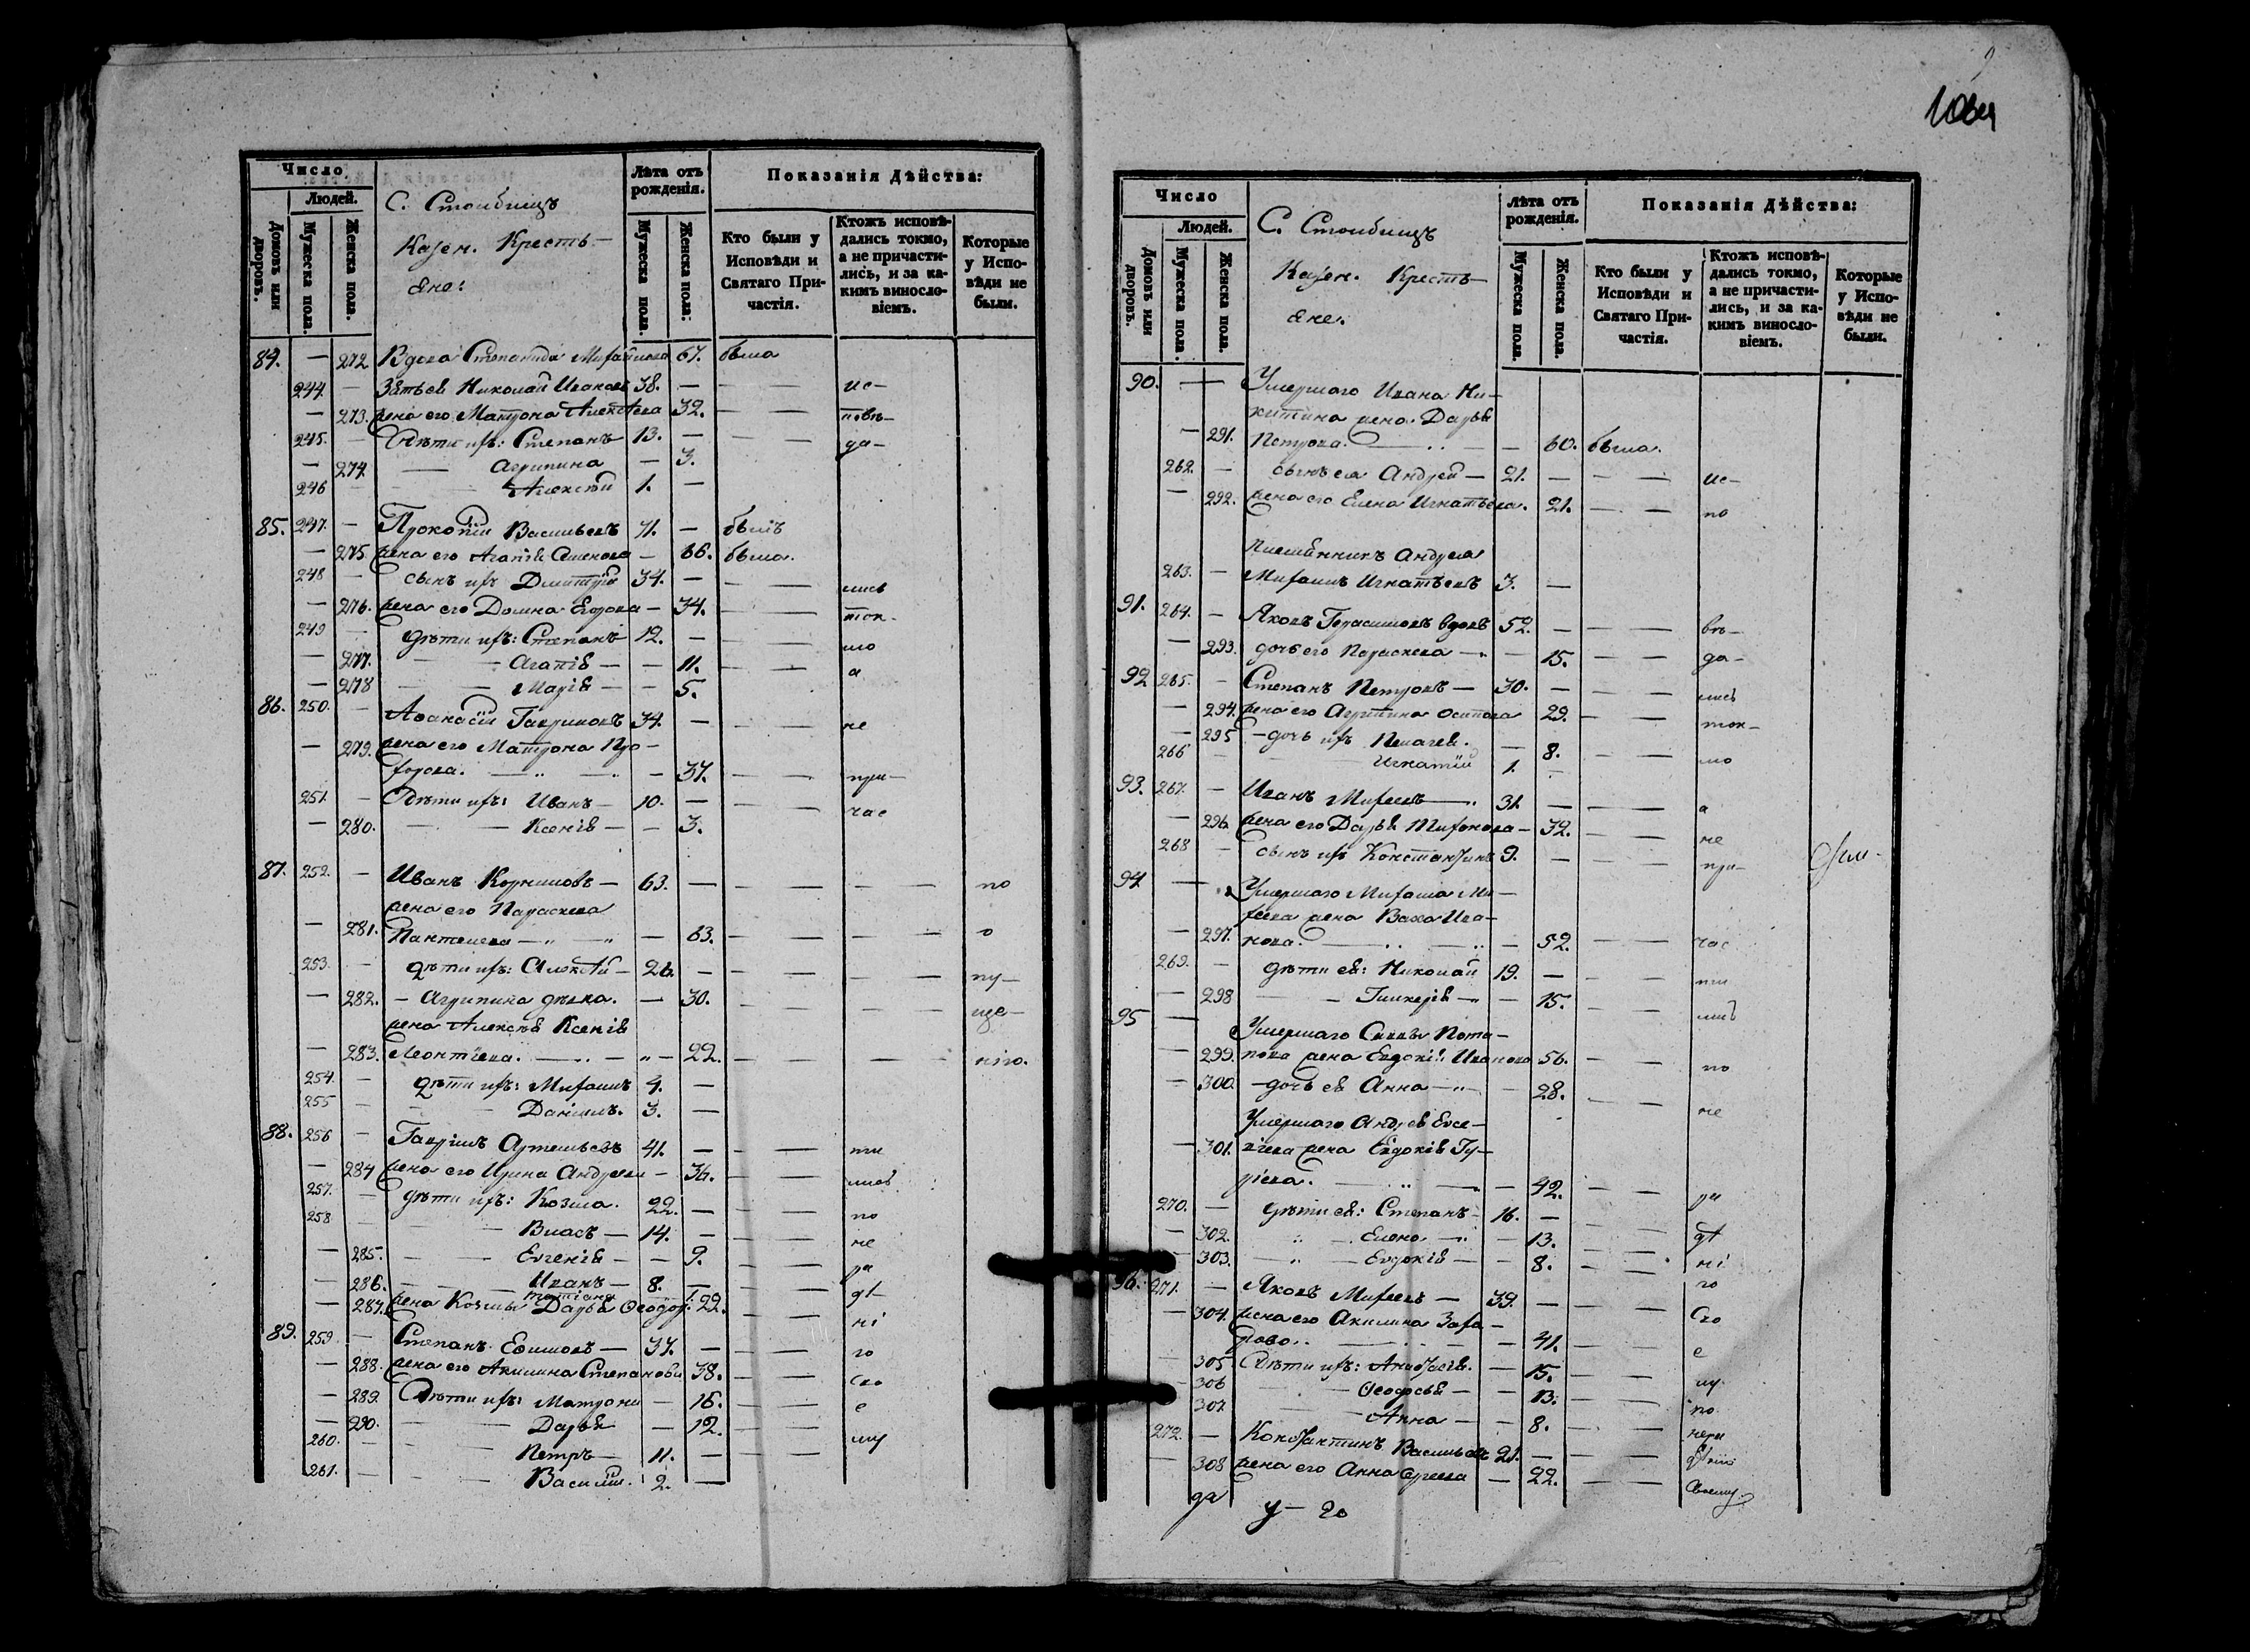 Число
Людей.
Домовъ или дворовъ.
Мужеска пола.
Женска пола.
С. Столбищъ
Казен. Кресть-
яне:
Лѣта отъ рожденія.
Мужеска пола.
Женска пола:
Показанія Дѣйства:
Кто были у Исповѣди и Святаго Причастія.
Ктожъ исповѣдались токмо, а не причастились, и за какимъ винословіемъ.
Которые у Исповѣди не были.
84. — 272 Вдова Степанида Михайлова 67. была
244 — Зять ея Николай Ивановъ 38. — — — ис-
— 273. жена его Матрона Алексѣева 32. — — повѣ-
245. — Дѣти ихъ: Степанъ 13. — — — да-
— 274 — Агрипина — 3.
246 — Алексѣй 1. —
85. 247. — Прокопій Васильевъ 71. — былъ
— 275 жена его Агапія Семенова — 66. была.
248 — сынъ ихъ Дмитрій 34. — — — лись
— 276. жена его Домна Егорова — 34. — — ток-
249 — дѣти ихъ: Степанъ 12. — — — мо
— 277. — — Агапія — — 11. — — а
— 278 — — Марія — — 5.
86. 250. — Аѳанасій Гавриловъ 34. — — — не
— 279. жена его Матрона Про-
хорова. — „ — „ — 37. — — при-
251. — Дѣти ихъ: Иванъ — 10. — — — час
— 280. — — Ксенія — — 3.
87. 252. — Иванъ Корниловъ — 63. — — — — — по
жена его Параскева
— 281. Пантелева — „ — „ — 63. — — — — о
253. — дѣти ихъ: Алексѣй — 26. — — — — — пу-
— 282. — Агрипина дѣвка. — 30. — — — — ще-
жена Алексѣя Ксенія
— 283. Леонтіева. — „ — „ — 22. — — — нію.
254. — дѣти ихъ: Михаилъ 4. —
255 — — Даніилъ. 3. —
88. 256 — Гавріилъ Артемьевъ 41. — — — ти
— 284 жена его Ирина Андреева — 36. — — лись
257. — дѣти ихъ: Козма. 22. — — — по
258 — — Власъ — 14. — — — не
— 285. — — Евгенія — — 9. — — ра
— 286. — — Иванъ — 8. — — — дѣ
Татіана 1.
— 287. жена Козмы Дарья Ѳеодор. 22. — — ні
89. 259. — Степанъ Ефимовъ — 37. — — — ю
— 288. жена его Акилина Степанова 38. — — сво
— 289. Дѣти ихъ: Матрона — 16. — — е
— 290. — — Дарья — 12. — — му
260. — — Петръ — 11. —
261. — — Василій. 2. —
Число
Людей.
Домовъ или дворовъ.
Мужеска пола.
Женска пола.
С. Столбищъ
Казен. Кресть-
яне.
Лѣта отъ рожденія.
Мужеска пола.
Женска пола.
Показанія Дѣйства:
Кто были у Исповѣди и Святаго Причастія.
Ктожъ исповѣдались токмо, а не причастились, и за какимъ винословіемъ.
Которые у Исповѣди не были.
90. — — Умершаго Ивана Ни-
китина жена Дарья
— 291. Петрова. — „ — 60. была.
262. — сынъ ея Андрей — 21. — — — ис-
— 292. жена его Елена Игнатьева. 21. — — по
племянникъ Андрея
263. — Михаилъ Игнатьевъ 3. —
91. 264. — Яковъ Герасимовъ вдовъ 52. — — — вѣ-
— 293. дочь его Параскева — „ — 15. — — да-
92 265. — Степанъ Петровъ — 30. — — — лись
— 294. жена его Агрипина Осипова 29. — — ток-
— 295 — дочь ихъ Пелагея. — 8. — — мо
266 — Игнатій 1. —
93. 267. — Иванъ Михеевъ — „ 31. — — — а
— 296. жена его Дарья Тихонова — 32. — — не
268 — сынъ ихъ Константинъ 9. — — — при-
94 — Умершаго Михаила Ми-
хеева жена Васса Ива-
— 297. нова. — „ — „ — 52. — — час
269. — дѣти ея: Николай 19. — — — ти
— 298 — — Гликерія — „ — 15. — — лись
95 — Умершаго Саввы Пота-
— 299. пова жена Евдокія Иванова 56. — — по
— 300. — дочь ея Анна — „ — 28. — — не
Умершаго Андрея Евсе-
— 301. віева жена Евдокія Гу-
ріева. — „ — „ — 42. — — ра
270. — дѣти ея: Степанъ — 16. — — — дѣ
— 302. „ — Елена — „ — 13. — — ні
— 303. „ — Евдокія — — 8. — — ю
96. 271. — Яковъ Михеевъ — 39. — — — Сво
— 304. жена его Акилина Заха-
рова. — „ — 41. — — е
— 305. Дѣти ихъ: Анастасія. — 15. — — му.
306 — Ѳеодосья — — 13. — — по
307. — Анна — — 8. — — нера
272. — Константинъ Васильевъ 21. — — — дѣнію
308 жена его Анна Сергеева — 22. — — Своему.
да
у — го